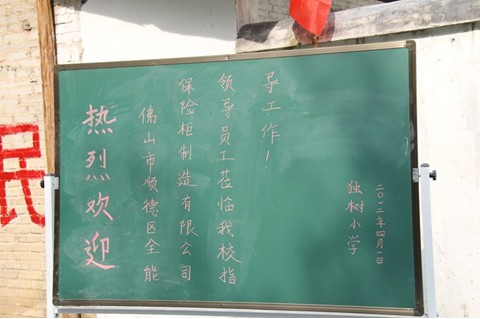 热烈欢迎
佛山市顺德区全能
保险柜制造有限公司
领导员工莅临我校指
导工作!
独树小学
二〇一二年四月一日
民